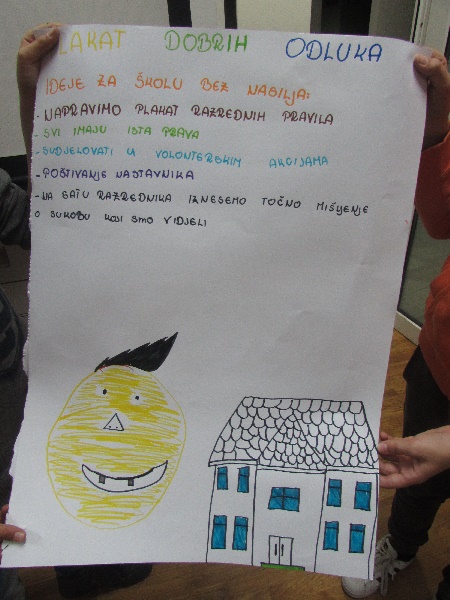 LAKAT DOBRIH ODLUKA
IDEJE ZA ŠKOLU BEZ NASILJA:
- NAPRAVIMO PLAKAT RAZREDNIH PRAVILA
- SVI IMAJU ISTA PRAVA
- SUDJELOVATI U VOLONTERSKIM AKCIJAMA
- POŠTIVANJE NASTAVNIKA
- NA SATU RAZREDNIKA IZNESEMO TOČNO MIŠLJENJE
O SUKOBU KOJI SMO VIDJELI